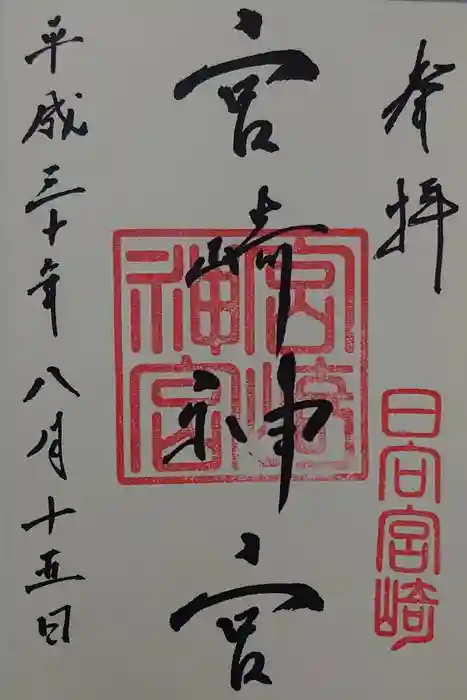 奉拝
日向宮崎
宮崎神宮
宮崎神宮
平成三十年八月十五日